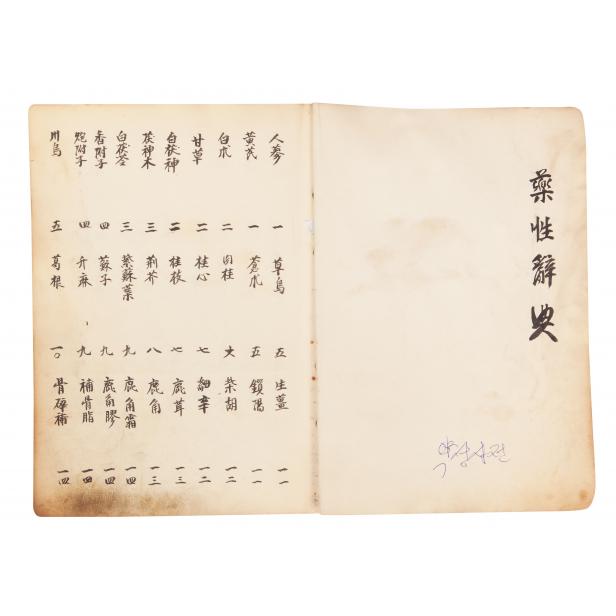 藥性辭典
약성사전
人蔘 一 草烏 五 生薑 一一
黃芪 一 蒼朮 五 鎖陽 一一
白朮 二 肉桂 六 柴胡 一二
甘草 二 桂心 七 細辛 一二
白茯神 二 桂枝 七 鹿茸 一三
茯神木 三 荊芥 八 鹿角 一三
白茯苓 三 紫蘇葉 九 鹿角霜 一四
香附子 四 蘇子 九 鹿角膠 一四
炮附子 四 升麻 九 補骨脂 一四
川烏 五 葛根 一〇 骨碎補 一四